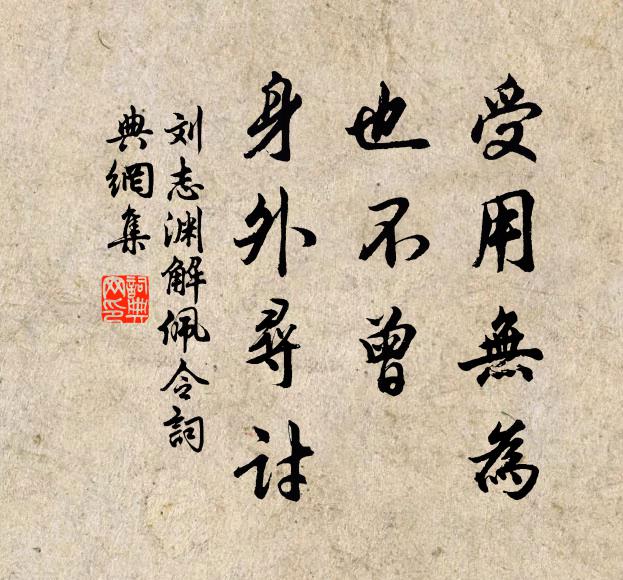 受用無為
也不曾
身外尋討
刘志渊解佩令詞
典網集
詞典
网印